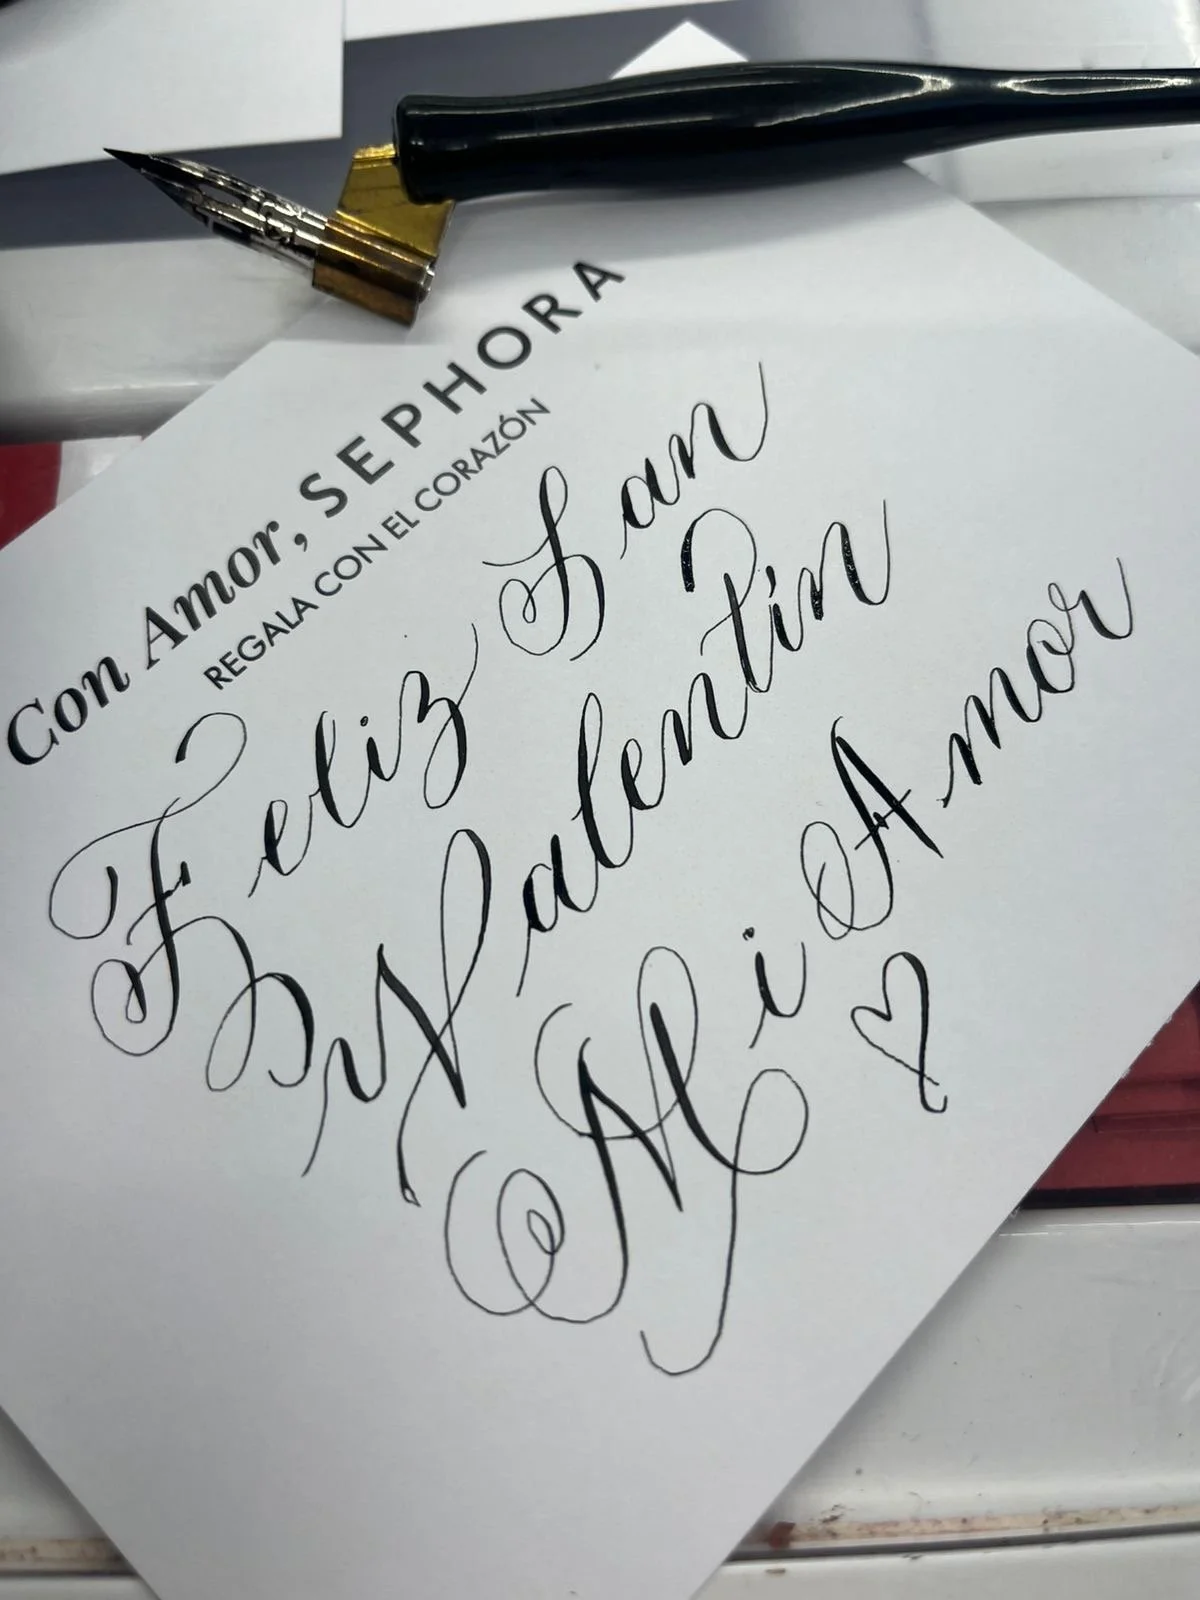 Con Amor, SEPHORA
REGALA CON EL CORAZÓN
Feliz San
Valentín
Mi Amor